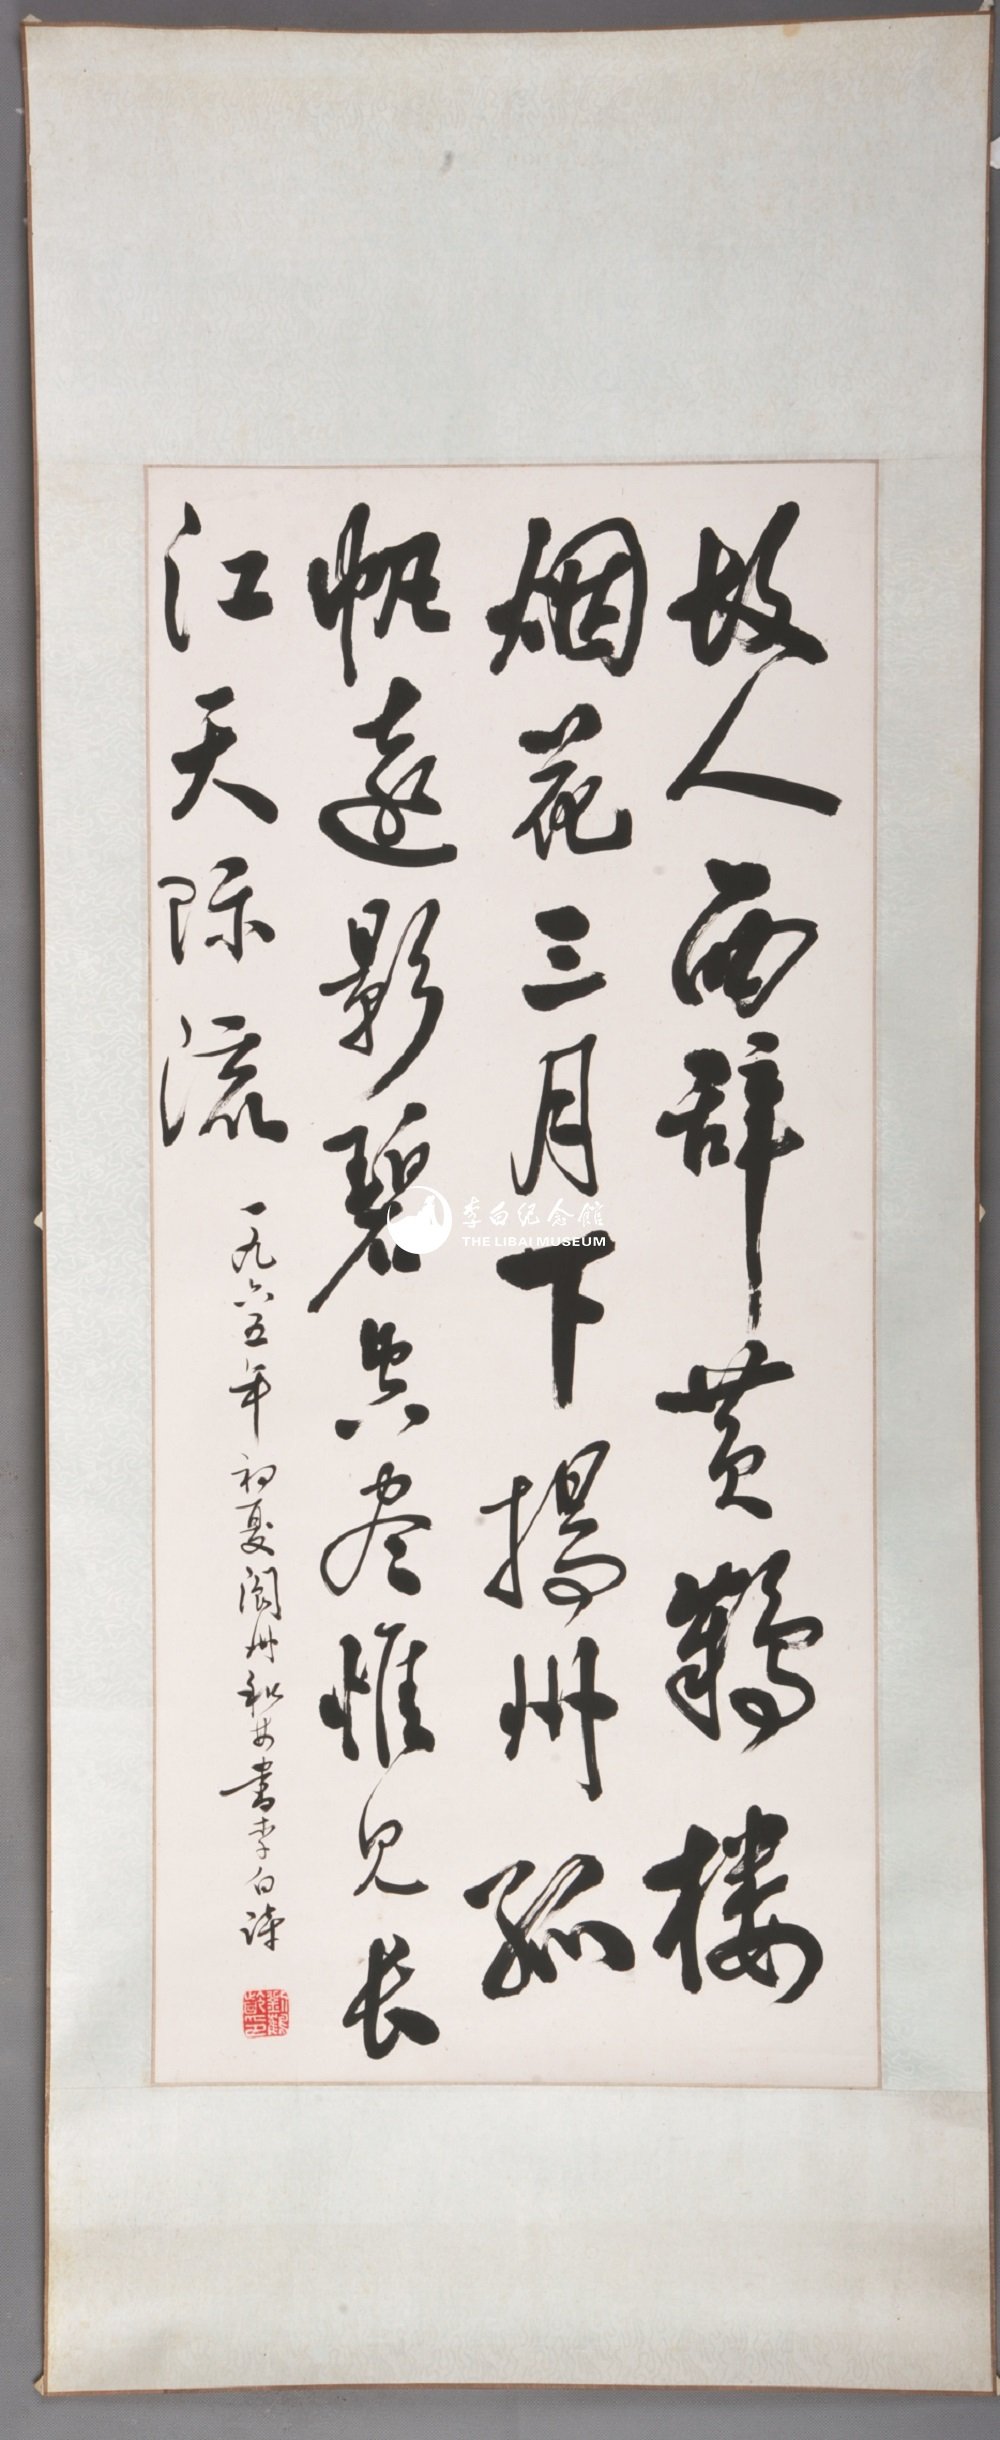 故人西辞黄鹤楼
烟花三月下揚州孤
帆遠影碧空尽惟见长
江天际流
一九六五年初夏阆州和廿書李白诗
李白纪念館
THE LIBAI MUSEUM